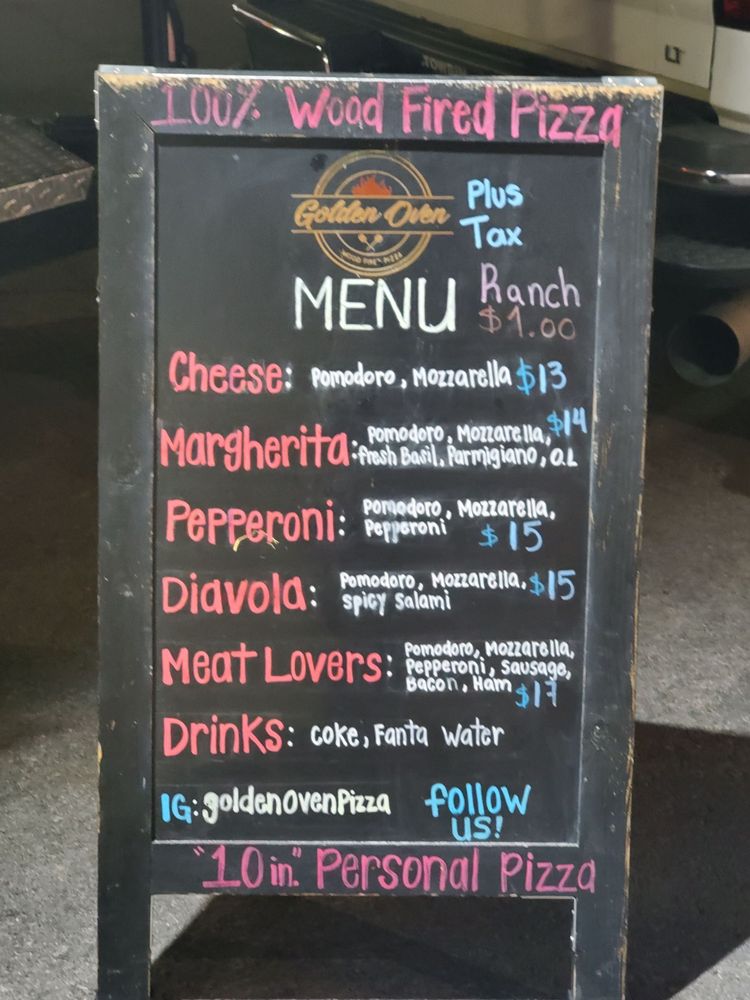 100% Wood Fired Pizza
Golden Oven
WOOD FIRE PIZZA
Plus
Tax
MENU
Ranch
$1.00
Cheese: Pomodoro, Mozzarella $13
Margherita: Pomodoro, Mozzarella, $14
fresh Basil, Parmigiano, O.L
Pepperoni: Pomodoro, Mozzarella,
Pepperoni $15
Diavola: Pomodoro, Mozzarella, $15
spicy salami
Meat Lovers: Pomodoro, Mozzarella,
Pepperoni, sausage,
Bacon, Ham $17
Drinks: Coke, Fanta Water
IG: goldenOvenPizza
follow
us!
"10 in." Personal Pizza
LT